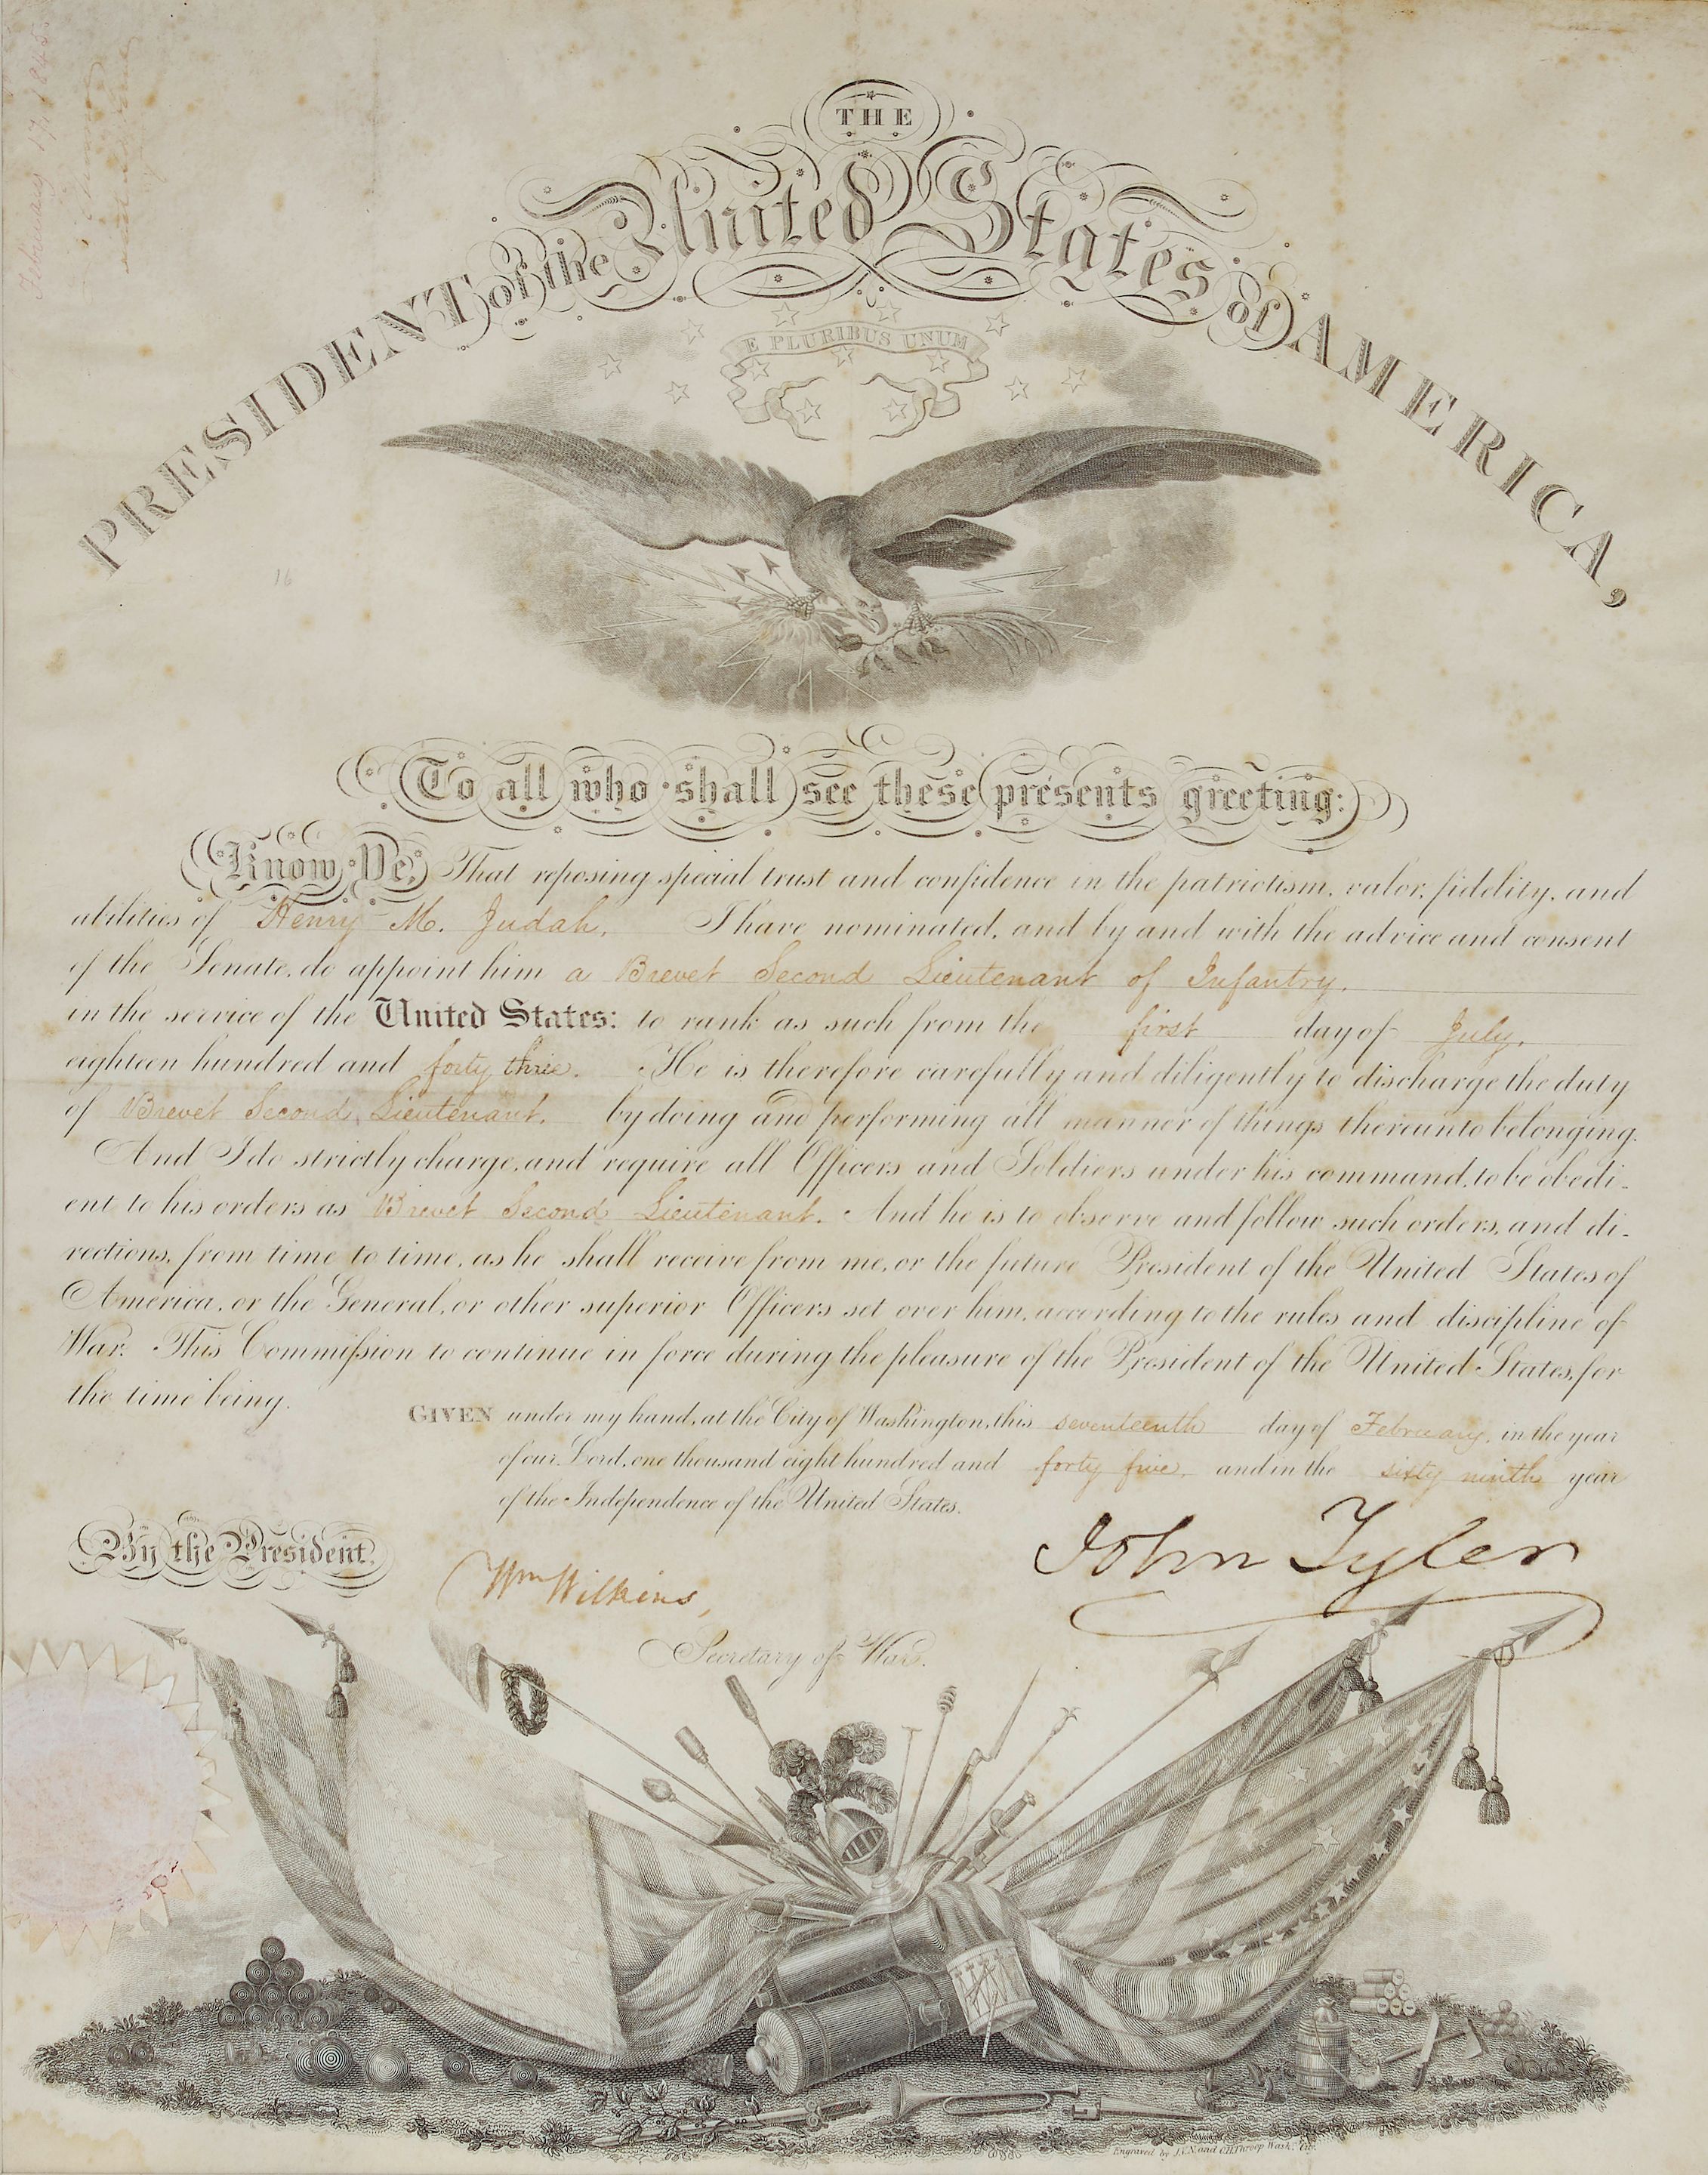 THE
PRESIDENT of the United States of AMERICA,
E PLURIBUS UNUM
16
To all who shall see these presents greeting:
Know Ye, That reposing special trust and confidence in the patriotism, valor, fidelity, and
abilities of Henry M. Judah, I have nominated, and by and with the advice and consent
of the Senate, do appoint him a Brevet Second Lieutenant of Infantry.
in the service of the United States: to rank as such from the first day of July,
eighteen hundred and forty three. He is therefore carefully and diligently to discharge the duty
of Brevet Second Lieutenant. by doing and performing all manner of things thereunto belonging.
And I do strictly charge, and require all Officers and Soldiers under his command, to be obedi-
ent to his orders as Brevet Second Lieutenant. And he is to observe and follow such orders, and di-
rections, from time to time, as he shall receive from me, or the future President of the United States of
America, or the General, or other superior Officers set over him, according to the rules and discipline of
War. This Commission to continue in force during the pleasure of the President of the United States, for
the time being.
GIVEN under my hand, at the City of Washington, this seventeenth day of February, in the year
of our Lord, one thousand eight hundred and forty five, and in the sixty ninth year
of the Independence of the United States.
By the President,
John Tyler
Wm Wilkins,
Secretary of War.
February 17, 1845
Engraved by J.V.N. and O.H. Throop Wash. City